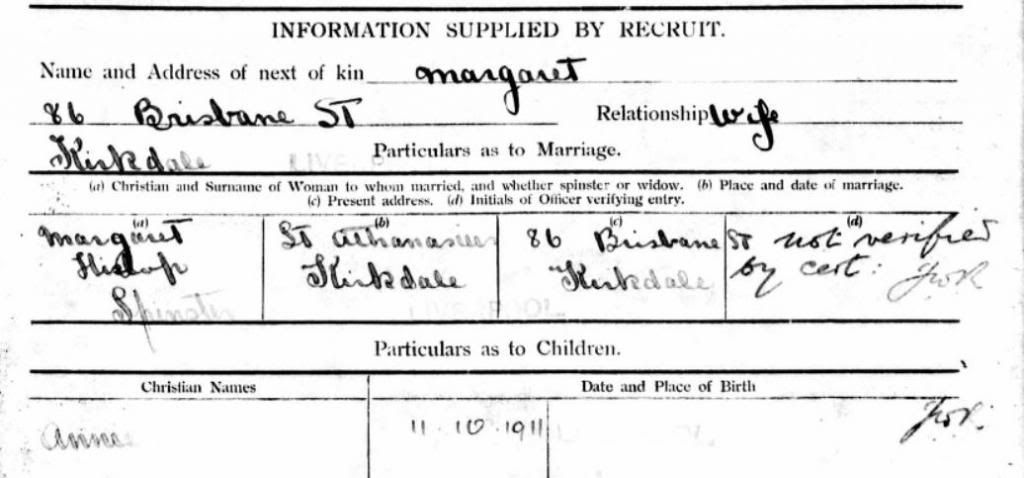 INFORMATION SUPPLIED BY RECRUIT.
Name and Address of next of kin Margaret
86 Brisbane ST Relationship Wife
Kirkdale
Particulars as to Marriage.
(a) Christian and Surname of Woman to whom married, and whether spinster or widow. (b) Place and date of marriage.
(c) Present address. (d) Initials of Officer verifying entry.
(a) (b) (c) (d)
Margaret St Athanasius 86 Brisbane ST not verified
Hislop Kirkdale Kirkdale by cert:
Spinster
LIVERPOOL
Particulars as to Children.
Christian Names Date and Place of Birth
Annie 11 10 1911